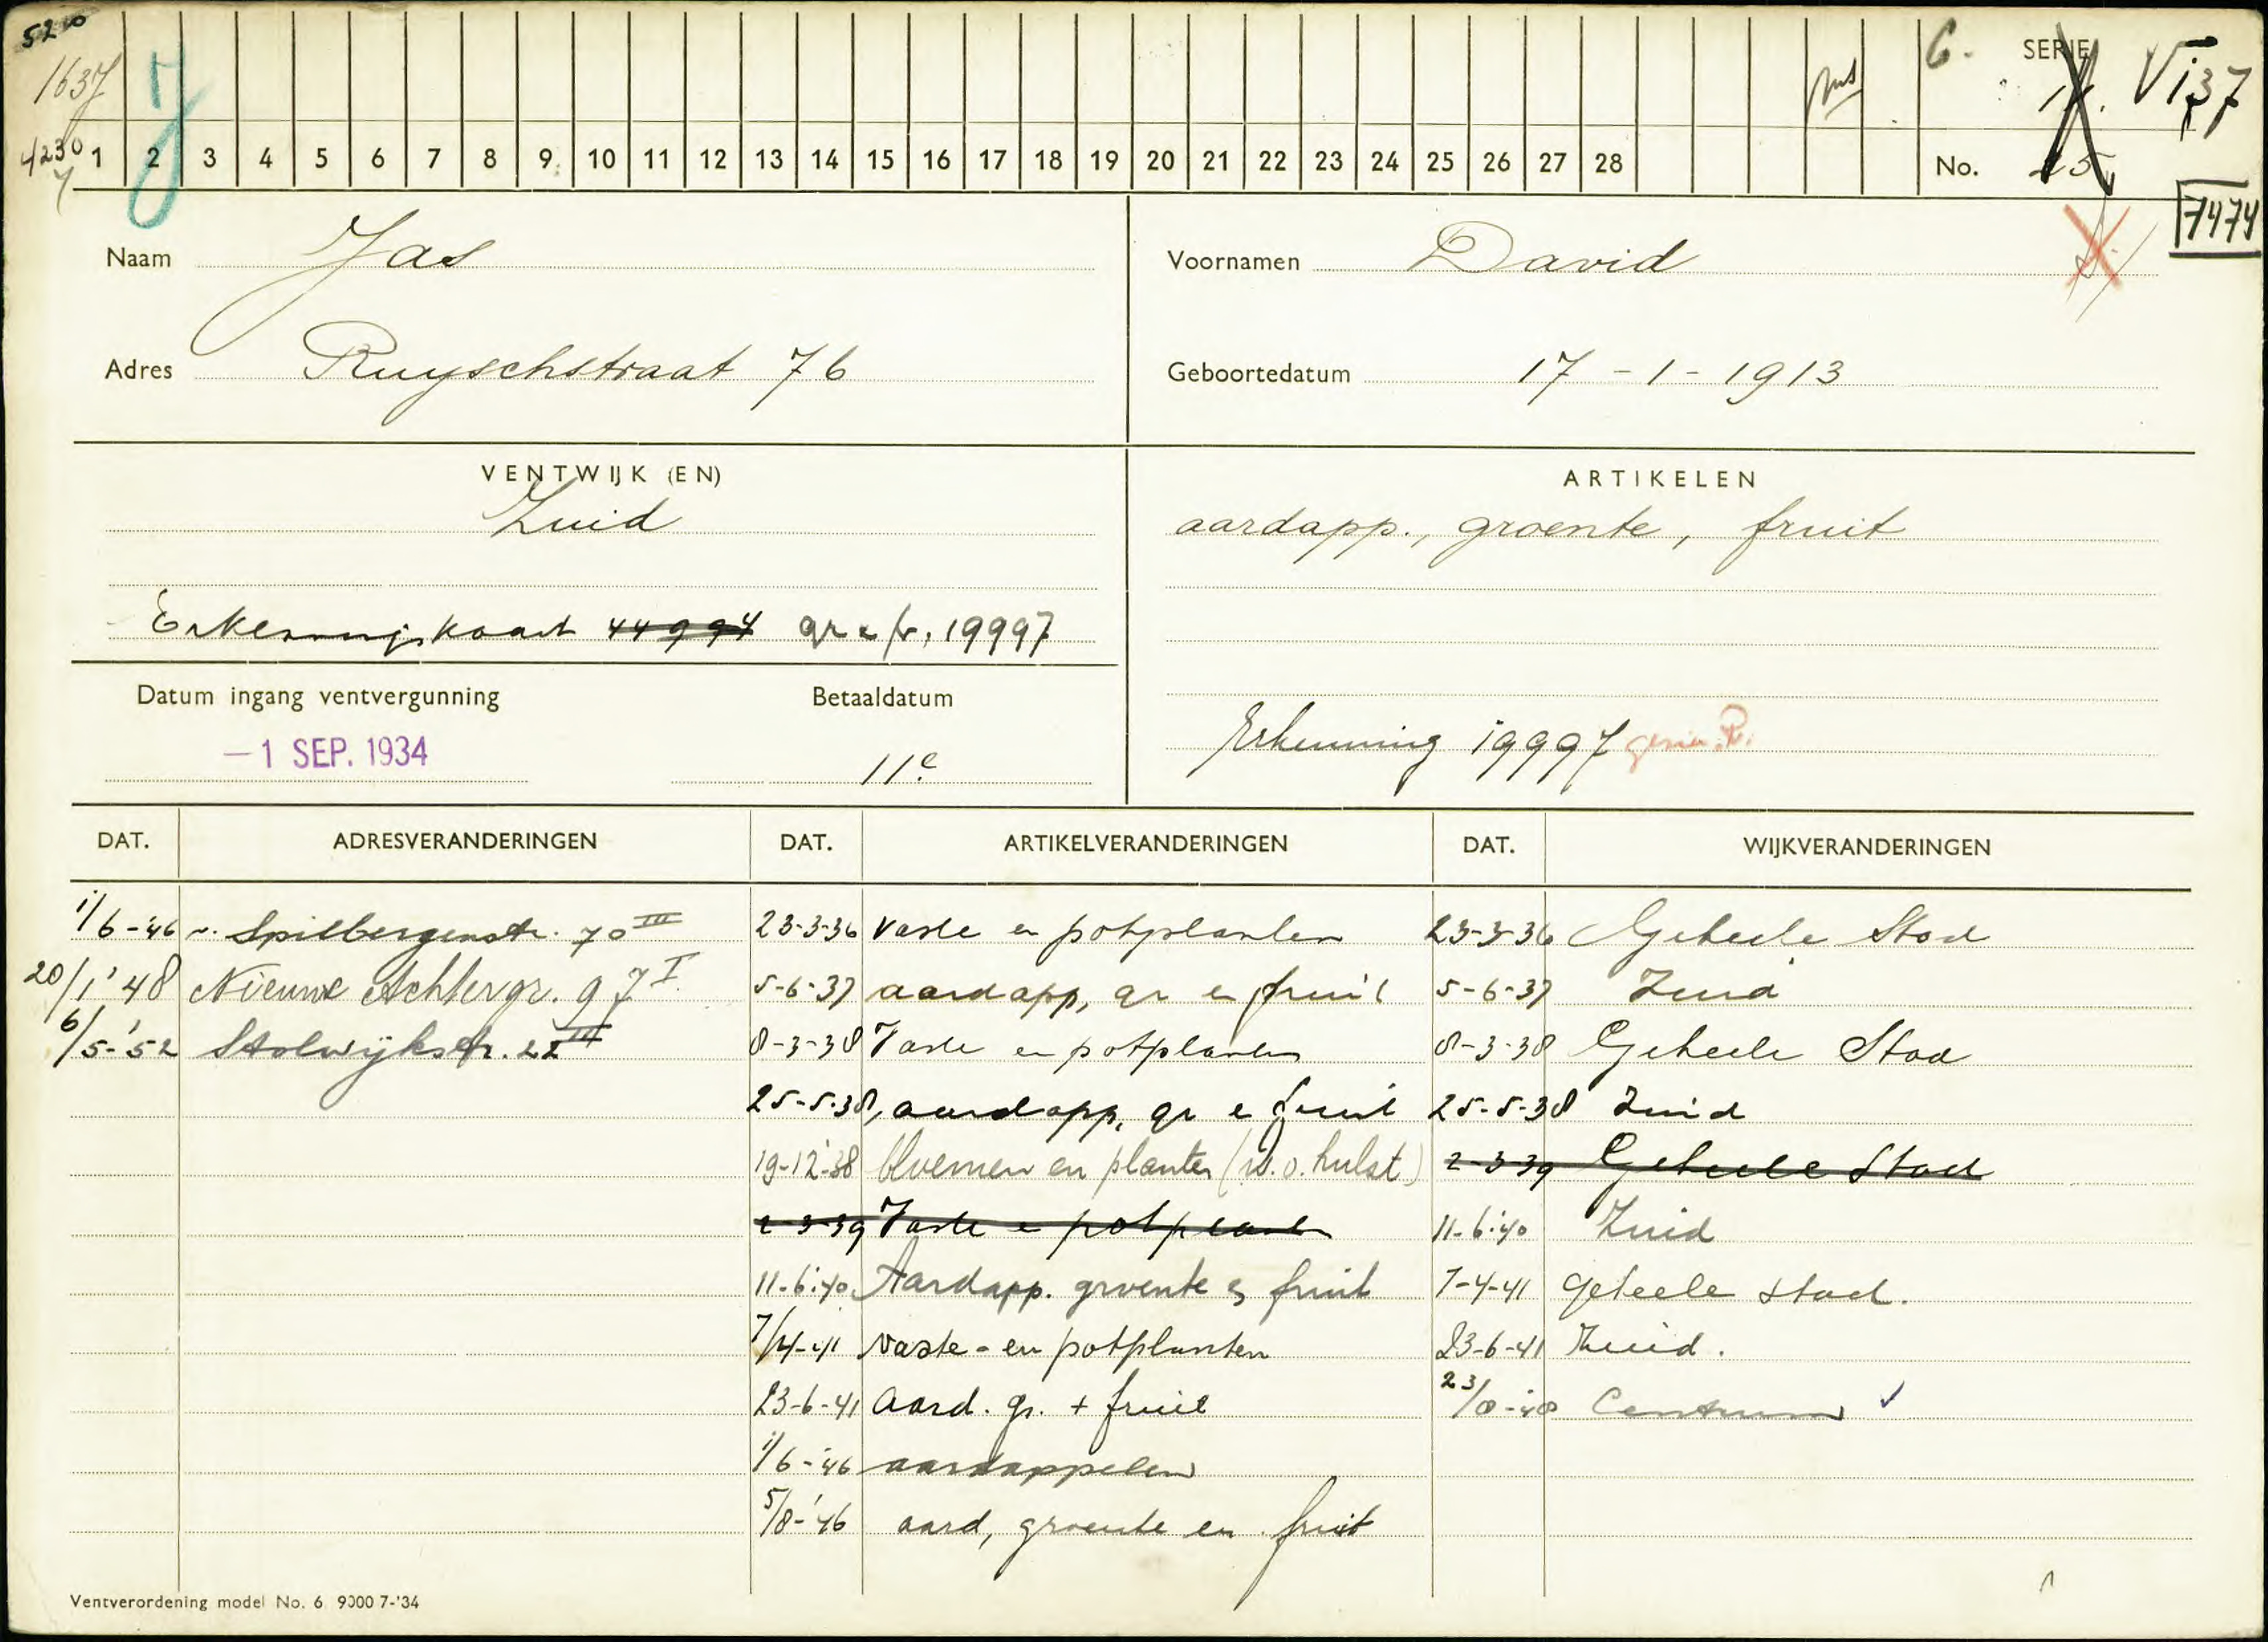 5200
1637
4230
7
J
C. SERIE
VI 37
1 2 3 4 5 6 7 8 9 10 11 12 13 14 15 16 17 18 19 20 21 22 23 24 25 26 27 28
No. 25
7474
Naam Jas
Voornamen David
Adres Ruyschstraat 76
Geboortedatum 17-1-1913
VENTWIJK (EN)
Zuid
Erkenningskaart 44994 gr e fr. 19997
ARTIKELEN
aardapp., groente, fruit
Erkenning 19997
Datum ingang ventvergunning
-1 SEP. 1934
Betaaldatum
11e
DAT. ADRESVERANDERINGEN DAT. ARTIKELVERANDERINGEN DAT. WIJKVERANDERINGEN
1/6-'46 v. Spilbergenstr. 70 III
20/1'48 Nieuwe Achtergr. 97 I
6/5-'52 Stolwijkstr. 22 III
23-3-36 Vaste en potplanten
5-6-37 aardapp, gr en fruit
8-3-38 Vaste en potplanten
25-5-38 aardapp, gr e fruit
19-12-38 bloemen en planten (w.o. hulst)
2-3-39 Vaste e potplanten
11-6-'40 Aardapp. groente en fruit
7/4-41 Vaste- en potplanten
23-6-41 Aard. gr. + fruit
1/6-'46 aardappelen
5/8-'46 aard, groente en fruit
23-3-36 Geheele Stad
5-6-37 Zuid
8-3-38 Geheele Stad
25-5-38 Zuid
2-3-39 Geheele Stad
11-6-'40 Zuid
7-4-41 geheele stad.
23-6-41 Zuid.
23/8-'48 Centrum
Ventverordening model No. 6 9000 7-'34